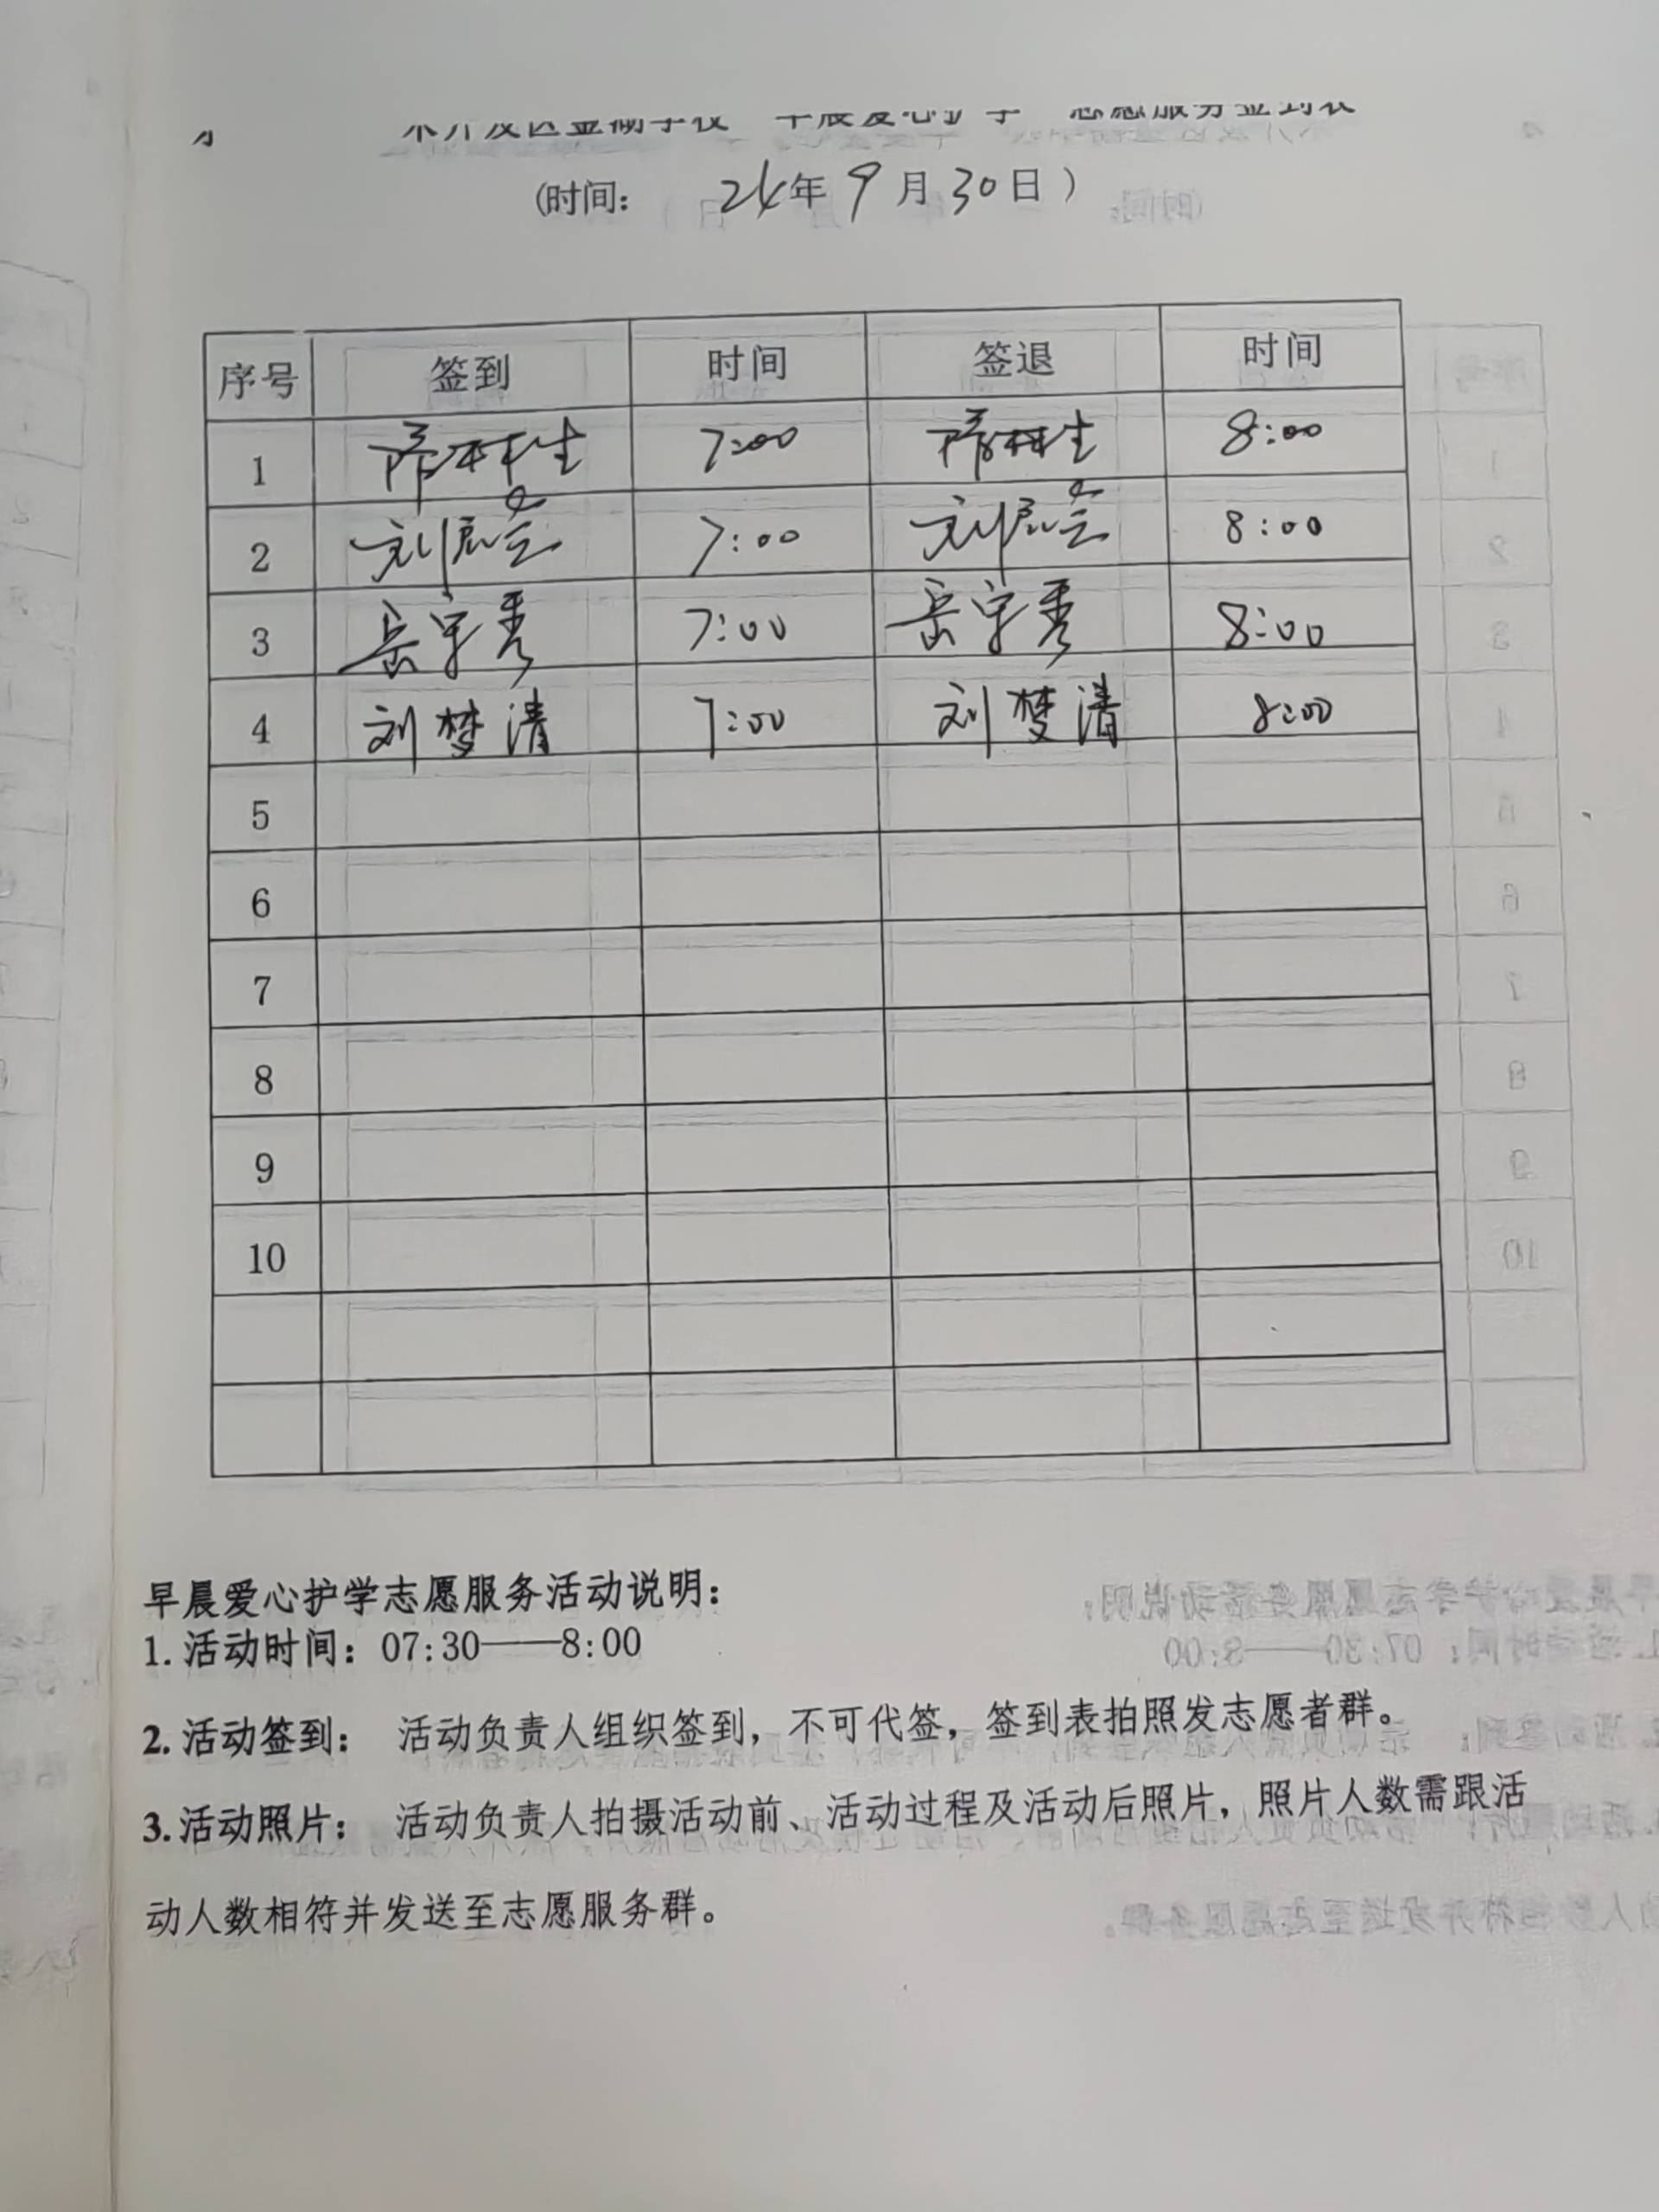 (时间： 24年 9月 30日 )
序号 签到 时间 签退 时间
1 7:00 8:00
2 刘 7:00 刘 8:00
3 岳宇秀 7:00 岳宇秀 8:00
4 刘梦清 7:00 刘梦清 8:00
5
6
7
8
9
10
早晨爱心护学志愿服务活动说明：
1. 活动时间：07:30——8:00
2. 活动签到： 活动负责人组织签到，不可代签，签到表拍照发志愿者群。
3. 活动照片： 活动负责人拍摄活动前、活动过程及活动后照片，照片人数需跟活
动人数相符并发送至志愿服务群。